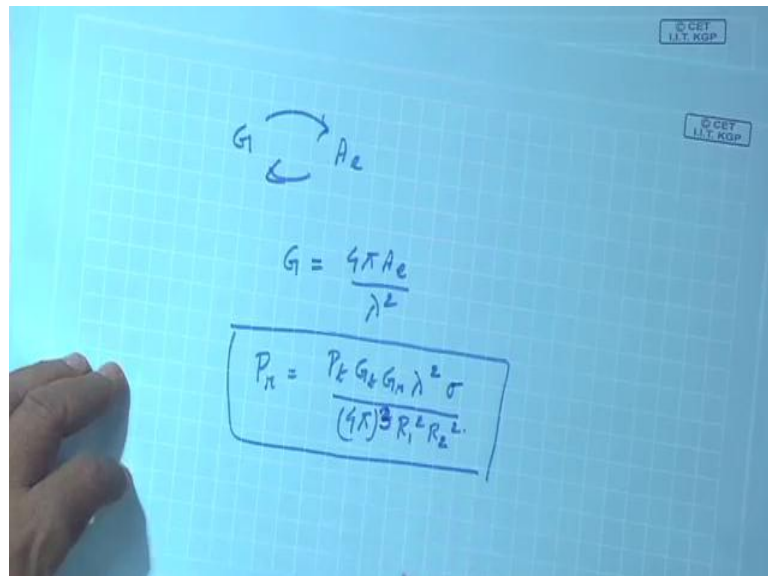 © CET
I.I.T. KGP
© CET
I.I.T. KGP
G Ae
G = 4πAe / λ²
Pr = Pt Gt Gr λ² σ / (4π)³ R₁² R₂²